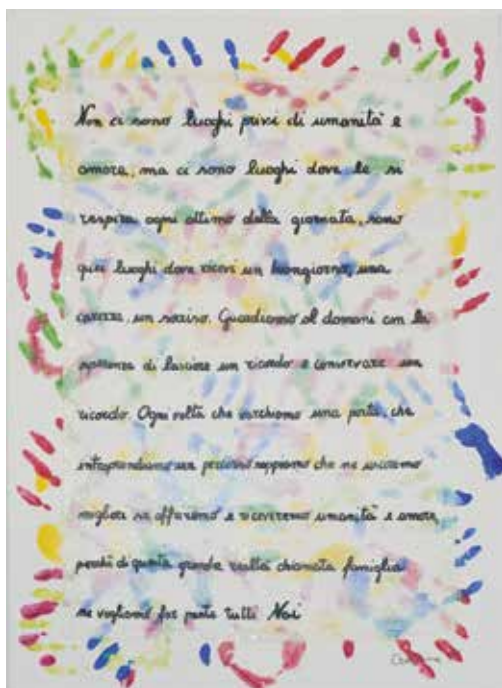 Non ci sono luoghi privi di umanità e
amore, ma ci sono luoghi dove le si
respira ogni attimo della giornata, sono
quei luoghi dove ricevi un buongiorno, una
carezza, un sorriso. Guardiamo al domani con la
speranza di lasciare un ricordo e conservare un
ricordo. Ogni volta che varchiamo una porta, che
intraprendiamo un percorso sappiamo che ne usciremo
migliori se offriremo e riceveremo umanità e amore,
perchè di questa grande realtà chiamata famiglia
ne vogliamo far parte tutti Noi